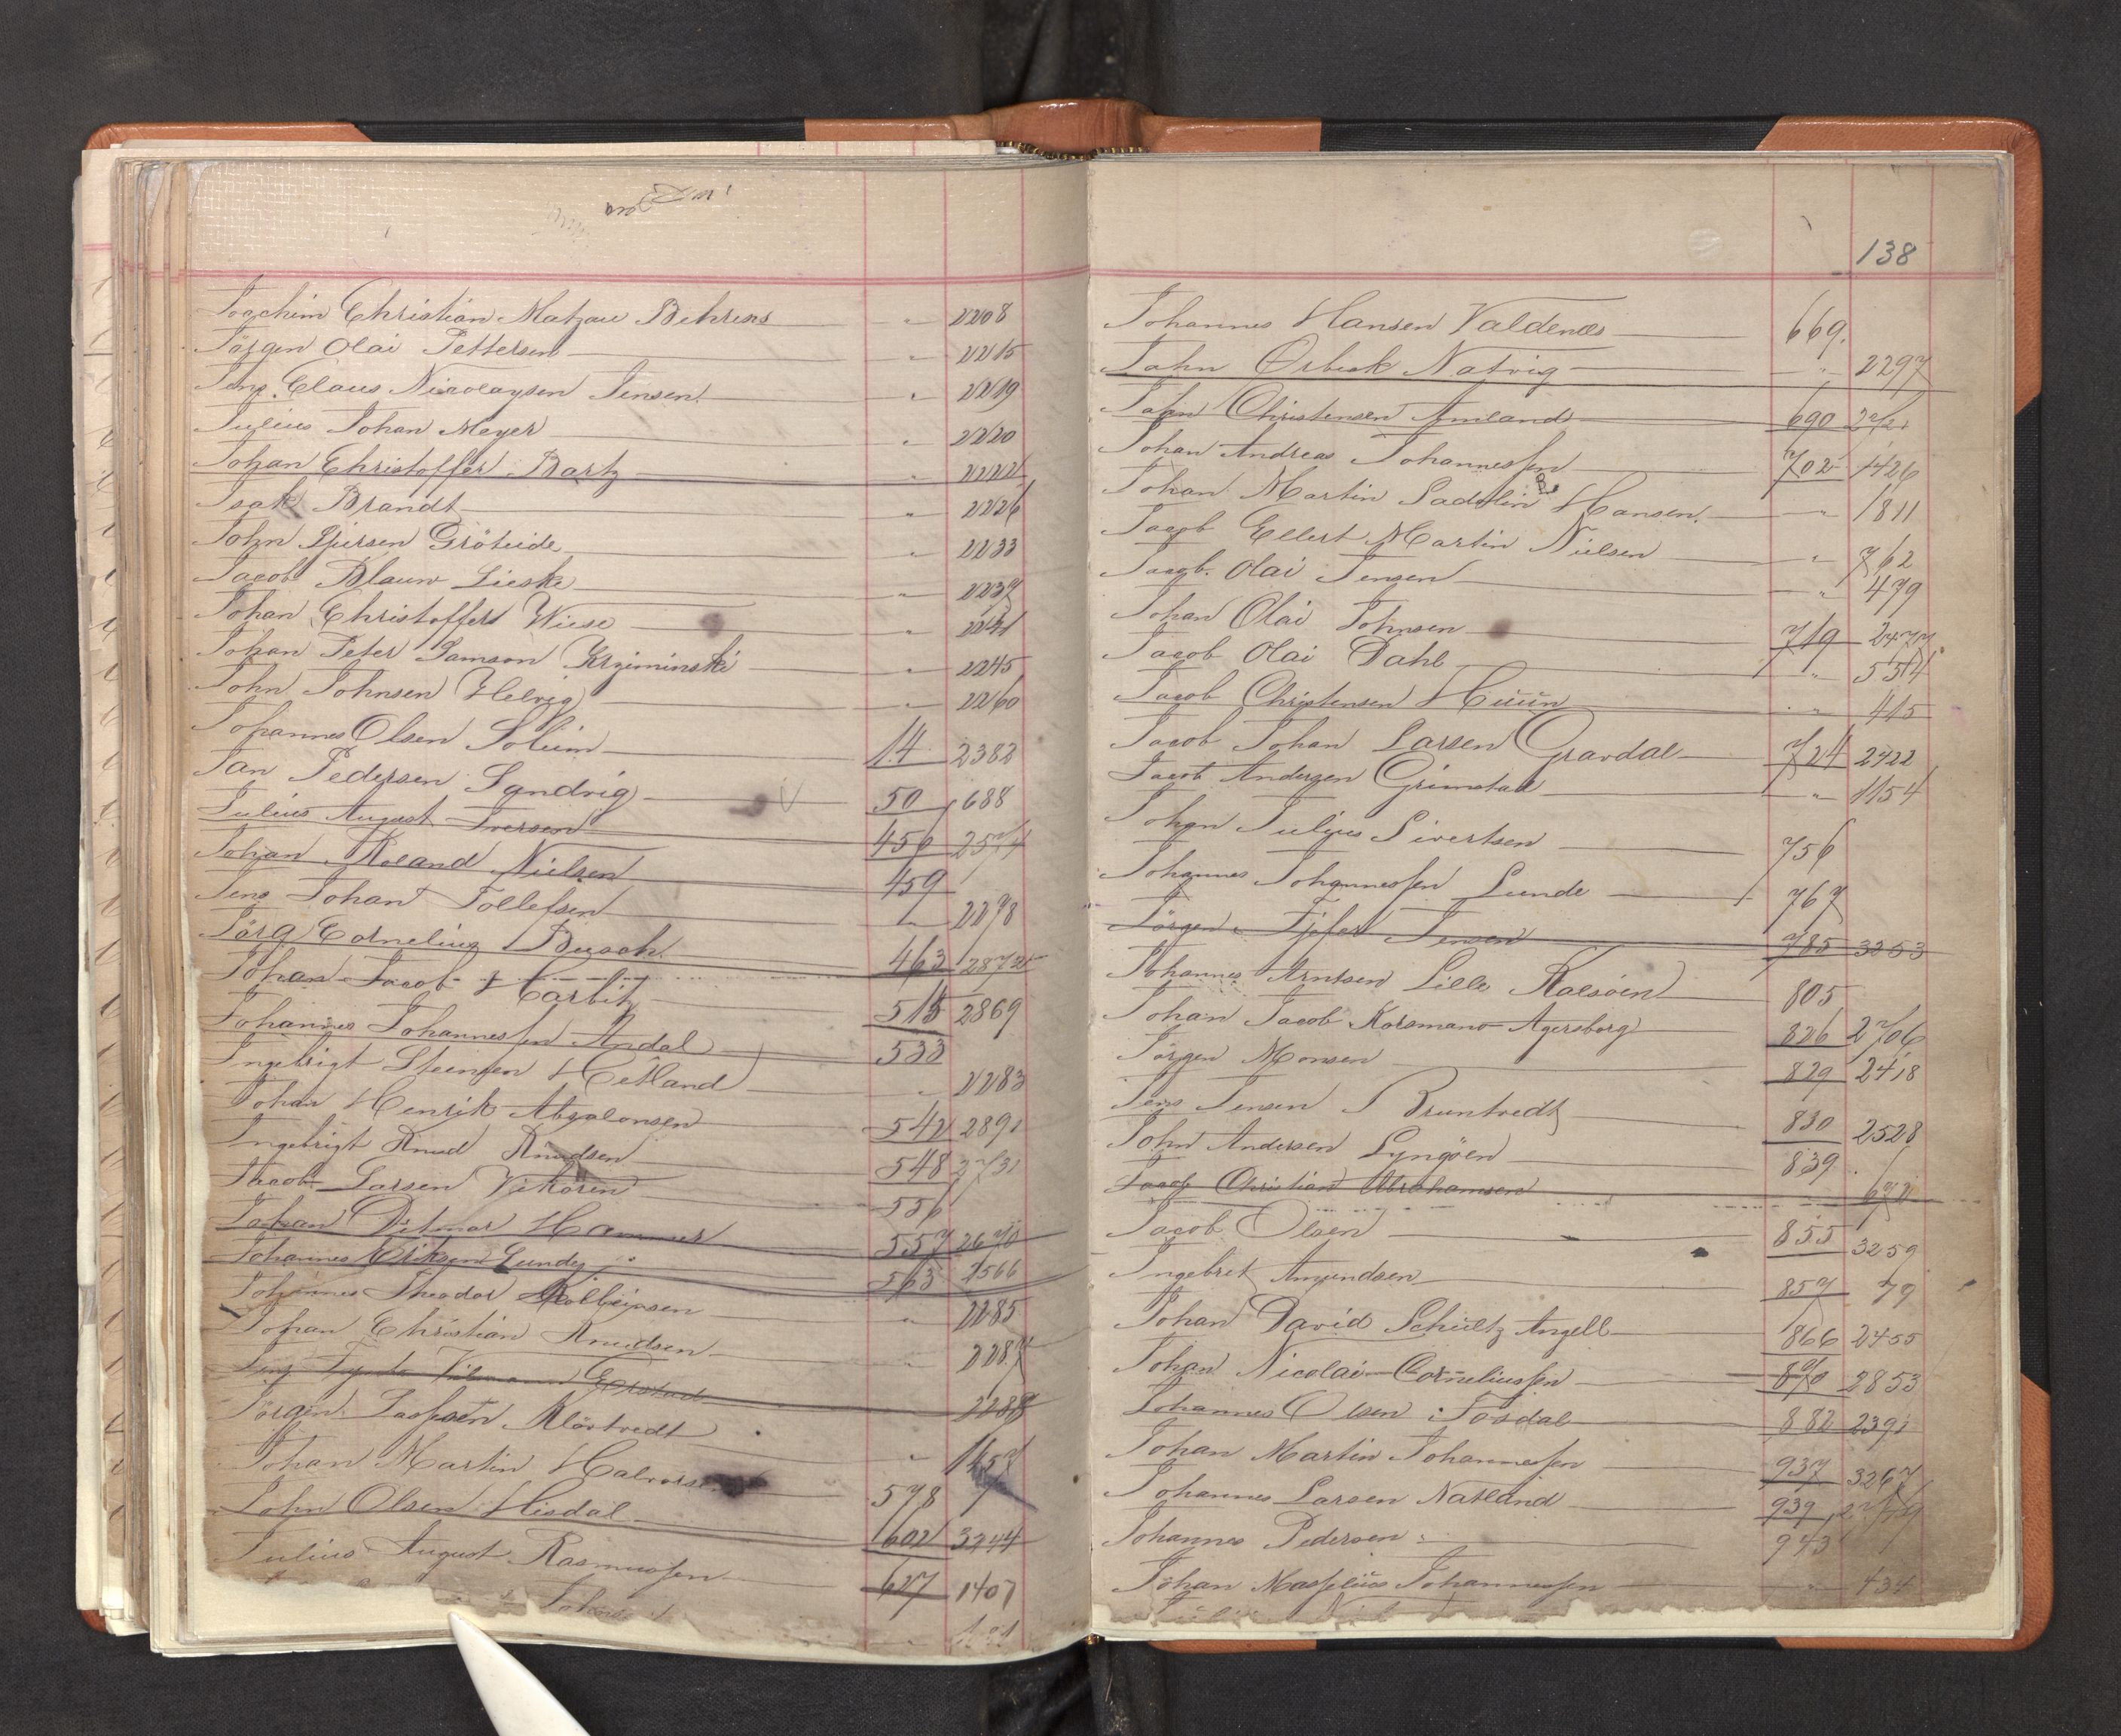 Joachim Christian Matzau Behrens " 2208
Jörgen Olai Pettersen " 2215
Jens Claus Nicolaysen Jensen " 2219
Julius Johan Meyer " 2220
Johan Christoffer Bartz " 2222
Isak Brandt " 2226
John Gjersen Gröteide " 2233
Jacob Blauw Lieske " 2237
Johan Christoffer Wiese " 2241
Johan Peter Samson Krziminski " 2245
John Johnsen Helvig " 2260
Johannes Olsen Soleim 14 2382
Jan Pedersen Sandvig 50 688
Julius August Iversen 456 2574
Johan Roland Nielsen 459
Jens Johan Tollefsen " 2278
Jörg Cornelius Busch 463 2872
Johan Jacob Harbitz 515 2869
Johannes Johannessen Andal 533
Ingebrigt Steinsen Hetland " 2283
Johan Henrik Abzalonsen 542 2891
Ingebrigt Knud Knudsen 548 2731
Jacob Larsen Vikören 556
Johan Ditmar Hammer 557 2670
Johannes Eriksen Lunde 563 2566
Johannes Theodor " 2285
Johan Christian Knudsen " 2287
Jens 2288
Jörgen Klöstvedt " 1157
Johan Martin 578
John Olsen Hisdal 602 3244
Julius August Rasmussen 627 1407
138
Johannes Hansen Valdenæs 669
John Örbeck Natvig " 2297
John Christensen Amland 690
Johan Andreas Johannessen 702 1426
Johan Martin Sadolin Hansen " 1811
Jacob Ellert Martin Nielsen " 762
Jacob Olai Jensen " 479
Johan Olai Johnsen 719 2477
Jacob Olai Dahl " 5514
Jacob Christensen Huun " 415
Jacob Johan Larsen Gravdal 724 2422
Jacob Andersen Grimstad " 1154
Johan Julius Sivertsen 756
Johannes Johannessen Lunde 767
Jörgen Jensen 785 3253
Johannes Arntsen Lille Kalsöen 805
Johan Jacob Korsmano Agersborg 826 2706
Jörgen Monsen 829 2418
Jens Jensen Bruntvedt 830 2528
John Andersen Lyngöen 839
Jacob Christian Abrahamsen 672
Jacob Olsen 855 3259
Ingebret Amundsen 857 79
Johan David Schultz Angell 866 2455
Johan Nicolai Corneliussen 870 2853
Johannes Olsen Fosdal 882 2391
Johan Martin Johannessen 937 3267
Johannes Larsen Natland 939
Johannes Pedersen 943
Johan Johannessen " 434